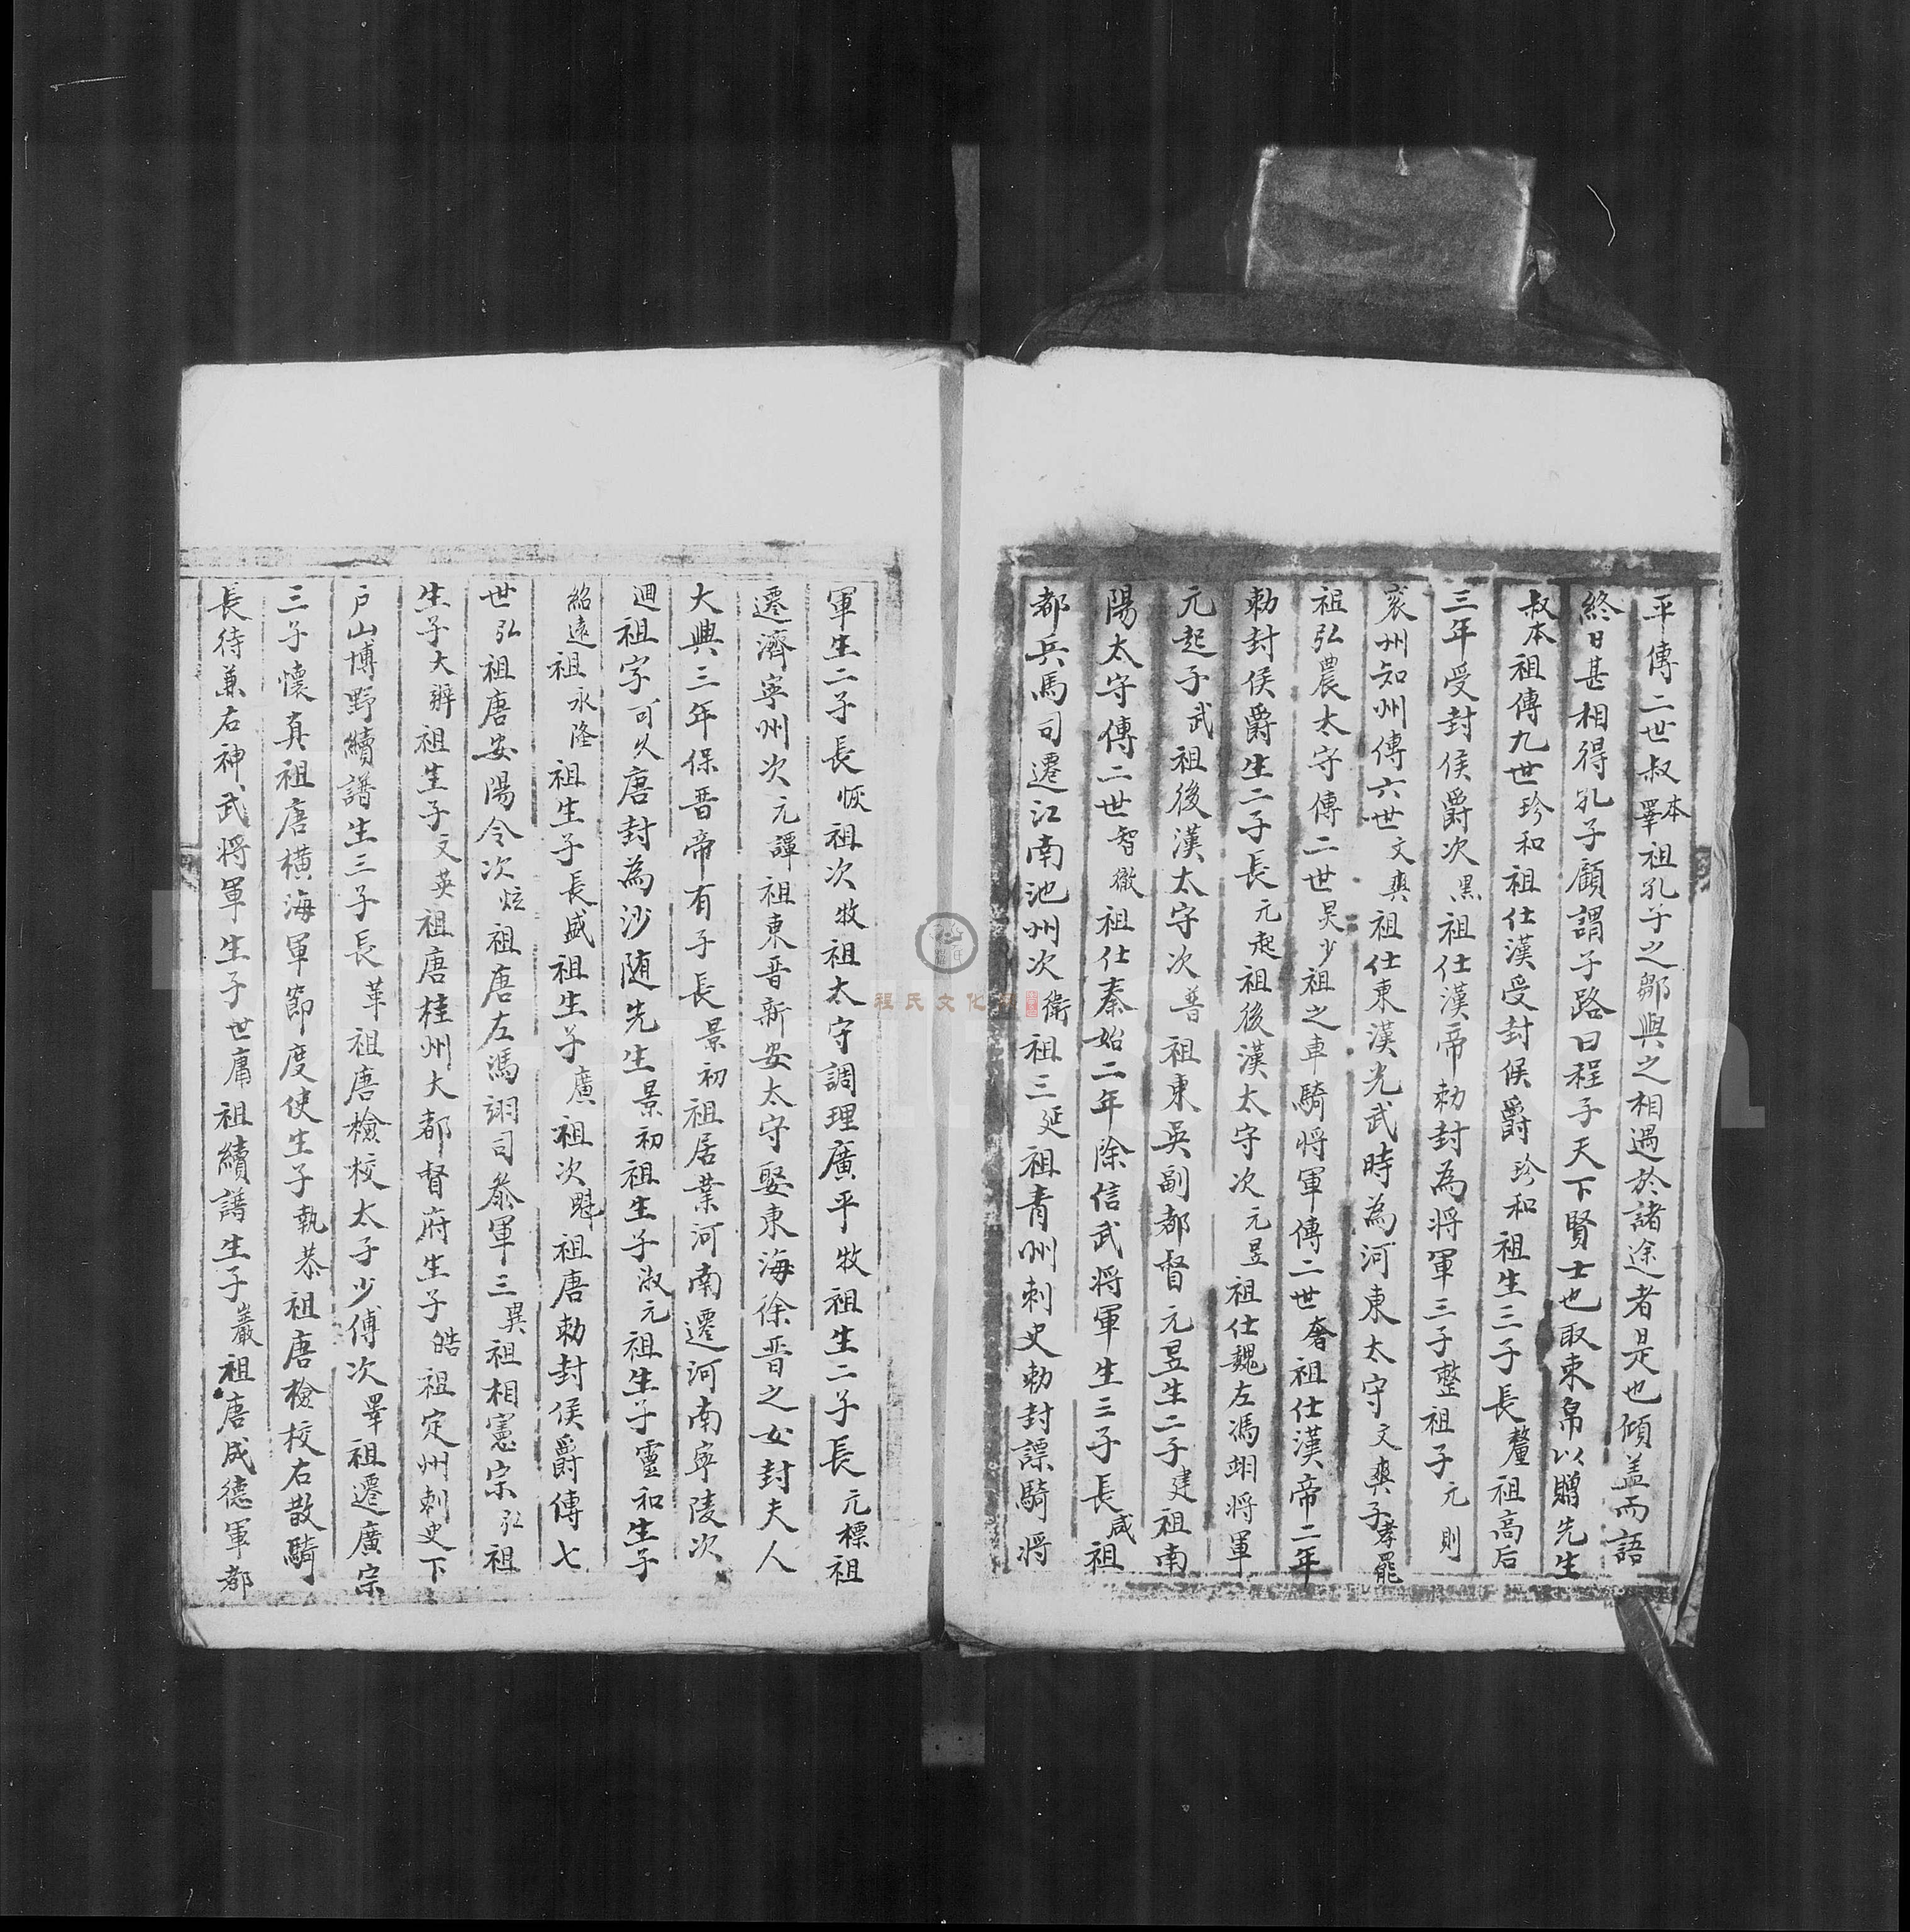 平傳二世叔本睪祖孔子之鄒與之相遇於諸途者是也傾盖而語
終日甚相得孔子顧謂子路曰程子天下賢士也取束帛以贈先生
叔本祖傳九世珍和祖仕漢受封候爵珍和祖生三子長釐祖高后
三年受封侯爵次黑祖仕漢帝勅封為将軍三子整祖子元則
州知州傳六世文爽祖仕東漢光武時為河東太守文爽子孝罷
祖弘農太守傳二世昃少祖之車騎将軍傳二世奢祖仕漢帝二年
勅封侯爵生二子長元起祖後漢太守次元昱祖仕魏左馮翊将軍
元起子武祖後漢太守次普祖東吳副都督元昱生二子建祖南
陽太守傳二世智徽祖仕秦始二年除信武将軍生三子長咸祖
都兵馬司遷江南池州次衛祖三延祖青州刺史勅封驃騎将
軍生二子長恢祖次牧祖太守調理廣平牧祖生二子長元標祖
遷濟寧州次元譚祖東晋新安太守娶東海徐晋之女封夫人
大興三年保晋帝有子長景初祖居業河南遷河南寧陵次
迴祖字可久唐封為沙随先生景初祖生子淑元祖生子靈和生子
紹遠祖永隆祖生子長盛祖生子廣祖次魁祖唐勅封侯爵傳七
世弘祖唐安陽令次炫祖唐左馮翊司叅軍三異祖相憲宗弘祖
生子大辦祖生子文英祖唐桂州大都督府生子皓祖定州刺史下
戸山博野續譜生三子長革祖唐檢校太子少傅次睪祖遷廣宗
三子懷真祖唐横海軍節度使生子執恭祖唐檢校右散騎
長待兼右神武将軍生子世庸祖續譜生子巖祖唐成德軍都
程氏文化